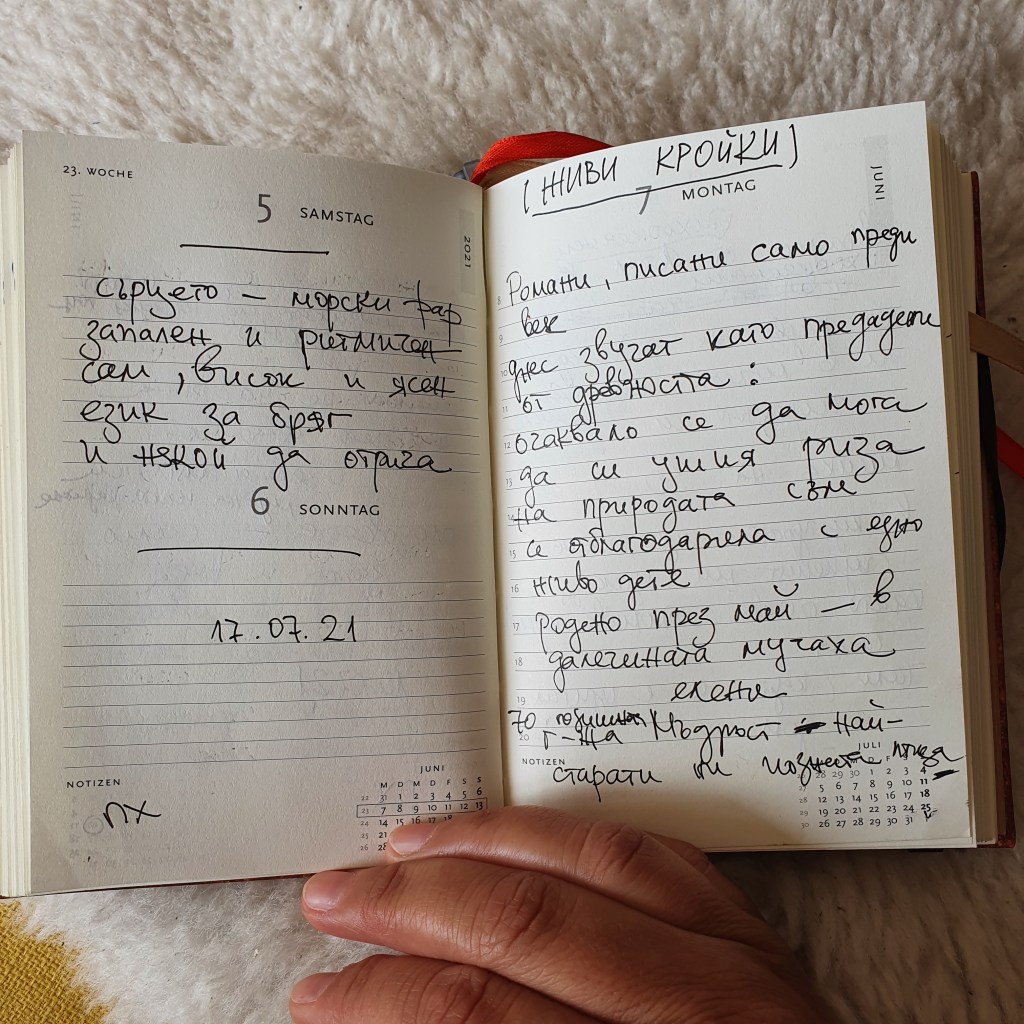 23. WOCHE
5 SAMSTAG
2021
сърцето – морски фар
запален и ритмичен
сам, висок и ясен
език за бряг
и някой да отрича
6 SONNTAG
17.07.21
NOTIZEN
ПХ
JUNI
M D M D F S S
22 31 1 2 3 4 5 6
23 7 8 9 10 11 12 13
24 14 15 16 17 18
25 21
26 28
[ЖИВИ КРОЙКИ]
7 MONTAG
JUNI
8 Романи, писани само преди
9 век
10 днес звучат като предадени
11 от древността:
12 очаквало се да мога
13 да си ушия риза
14 на природата съм
15 се отблагодарила с едно
16 живо дете
17 Родено през май – в
18 далечината мучаха
19 елени
70 годишната
20 г-жа Мъдрост най-
NOTIZEN
старата ми позната птица
JULI
28 29 30 1 2 3 4
27 5 6 7 8 9 10 11
28 12 13 14 15 16 17 18
29 19 20 21 22 23 24 25
30 26 27 28 29 30 31